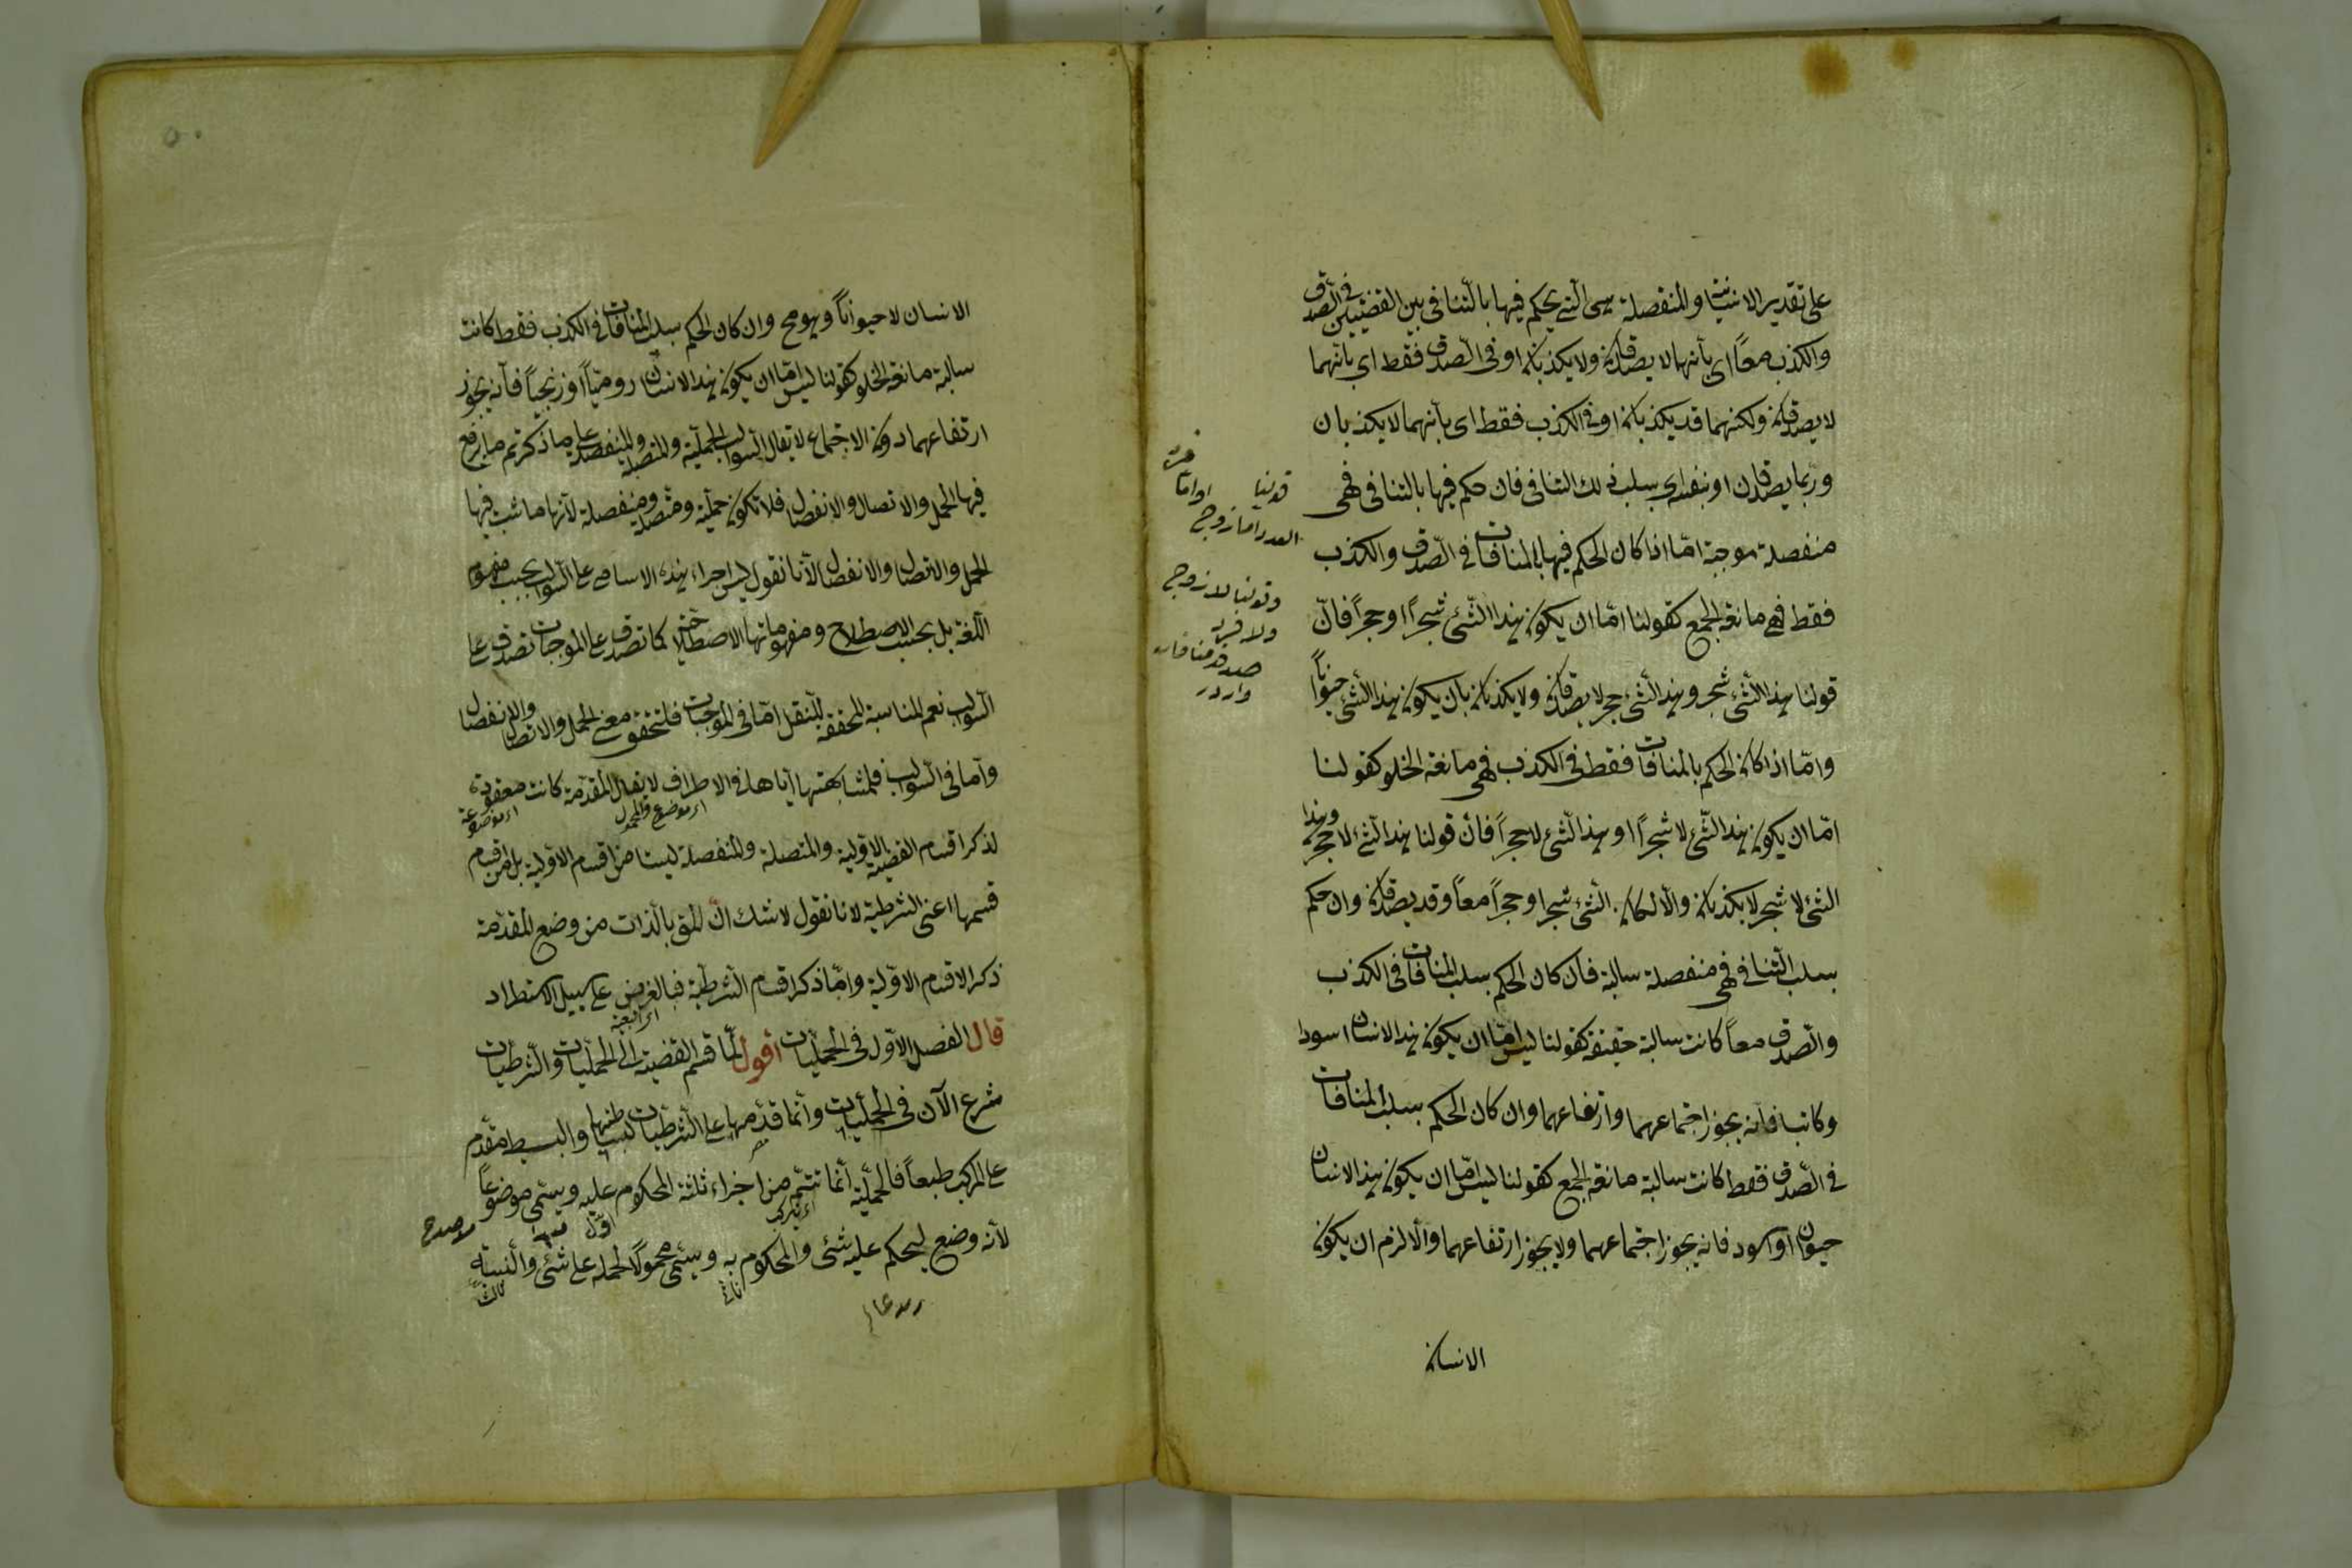 على تقدير الانسانية والمنفصلة هى التى يحكم فيها بالتنافى بين القضيتين فى الصدق
والكذب معاً اى بأنهما لا يصدقان ولا يكذبان او فى الصدق فقط اى بأنهما
لا يصدقان ولكنهما قد يكذبان او فى الكذب فقط اى بأنهما لا يكذبان
وربما يصدقان او بنفيه اى بسلب ذلك التنافى فان حكم فيها بالتنافى فهى
منفصلة موجبة امّا اذا كان الحكم فيها بالمنافات فى الصدق والكذب
فقط فهى مانعة الجمع كقولنا امّا ان يكون هذا الشئ شجراً او حجراً فانّ
قولنا هذا الشئ شجر وهذا الشئ حجر لا يصدقان ولا يكذبان بان يكون هذا الشئ حيواناً
وامّا اذا كان الحكم بالمنافات فقط فى الكذب فهى مانعة الخلو كقولنا
امّا ان يكون هذا الشئ لا شجراً او هذا الشئ لا حجراً فان قولنا هذا الشئ لا حجر وهذا
الشئ لا شجر لا يكذبان والا لكان الشئ شجرا وحجراً معاً وقد يصدقان وان حكم
بسلب التنافى فهى منفصلة سالبة فان كان الحكم بسلب المنافات فى الكذب
والصدق معاً كانت سالبة حقيقة كقولنا ليس امّا ان يكون هذا الانسان اسودا
وكاتبا فانه يجوز اجتماعهما وارتفاعهما وان كان الحكم بسلب المنافات
فى الصدق فقط كانت سالبة مانعة الجمع كقولنا ليس امّا ان يكون هذا الانسان
حيوانا او اسود فانه يجوز اجتماعهما ولا يجوز ارتفاعهما والا لزم ان يكون
الانسان
قولنا
العدد اما زوج
وقولنا لا زوج
ولا فرد
الانسان لا حيواناً وهو مح وان كان الحكم بسلب المنافات فى الكذب فقط كانت
سالبة مانعة الخلو كقولنا ليس امّا ان يكون هذا الانسان روميّاً او زنجياً فانه يجوز
ارتفاعهما دون الاجتماع لا يقال السوالب الحملية والمتصلة والمنفصلة على ما ذكرتم ما يرفع
فيها الحمل والاتصال والانفصال فلا تكون حملية ومتصلة ومنفصلة لانها ما ثبت فيها
الحمل والاتصال والانفصال لأنا نقول ليس اجراء هذه الاسامى على السوالب بحسب مفهوم
اللغة بل بحسب الاصطلاح ومفهوماتها الاصطلاحية كما تصدق على الموجبات تصدق على
السوالب نعم المناسبة المحققة للنقل امّا فى الموجبات فلتحقق معنى الحمل والاتصال والانفصال
وامّا فى السوالب فلمشابهتها اياها فى الاطراف لا يقال المقدمة كانت معقودة
اى موضوع والمحمول
اى موضوعة
لذكر اقسام القضية الاولية والمتصلة والمنفصلة ليستا من اقسام الاولية بل من اقسام
قسمها اعنى الشرطية لانا نقول لا شك انّ المق بالذات من وضع المقدمة
ذكر الاقسام الاولية وامّا ذكر اقسام الشرطية فبالعرض على سبيل الاستطراد
قال الفصل الاول فى الحمليات أقول لمّا قسم القضية الى الحمليات والشرطيات
شرع الآن فى الحمليات وانما قدّمها على الشرطيات لبساطتها والبسيط مقدم
على المركب طبعاً فالحملية انما تتم من اجزاء ثلثة المحكوم عليه ويسمى موضوعاً
اى يتركب
اوّل
لأنه وضع ليحكم عليه شئ والمحكوم به ويسمى محمولاً لحمله على شئ والنسبة